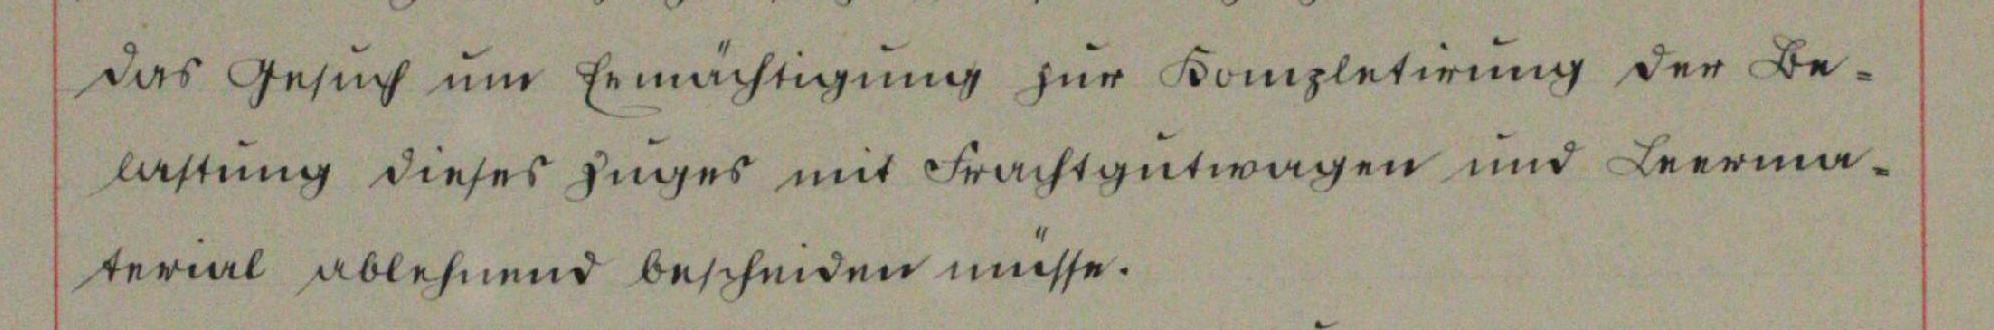 das Gesuch um Ermächtigung zur Kompletirung der Be-
lastung dieses Zuges mit Frachtgutwagen und Leerma-
terial ablehnend bescheiden müsse.